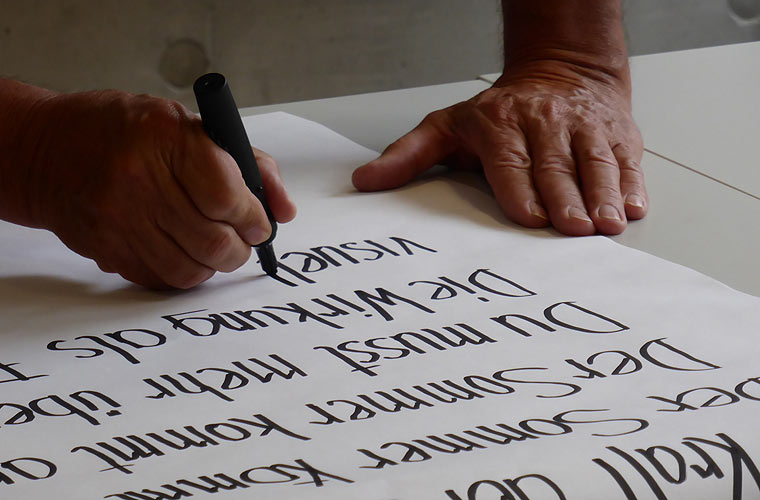 Krall der
Der Sommer komm
Der Sommer kommt an
Du musst mehr übe
Die Wirkung als
visuell